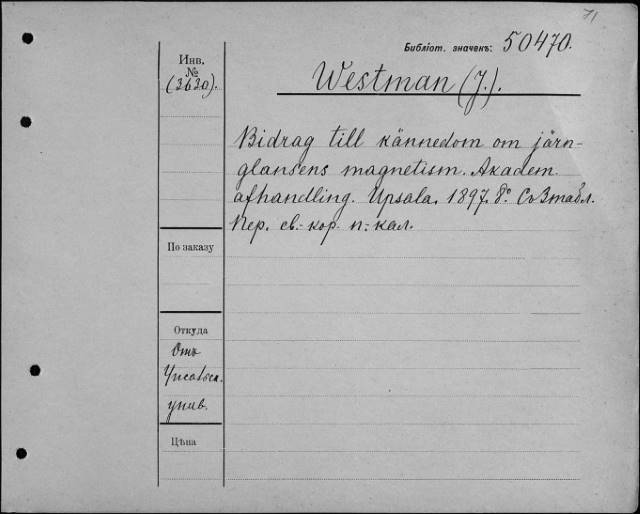 71
Библіот. значекъ: 50470.
Инв.
№
(3630).
Westman (J.).
Bidrag till kännedom om järn-
glansens magnetism. Akadem.
afhandling. Upsala. 1897. 8º. Со 3 табл.
Пер. св.-кор. п.-кал.
По заказу
Откуда
Отъ
Упсальск.
унив.
Цѣна